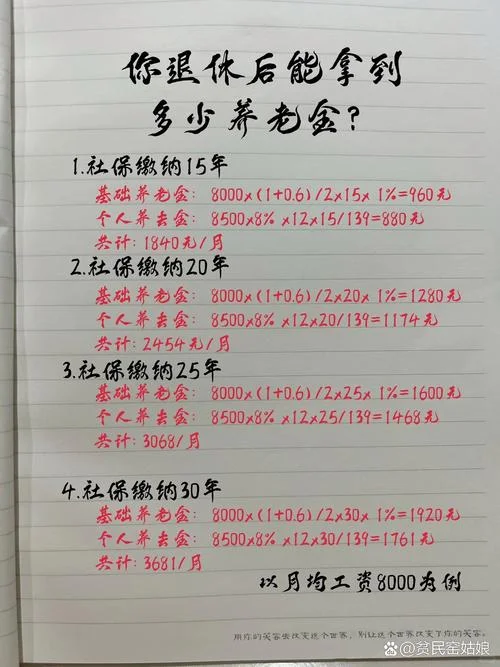 你退休后能拿到
多少养老金?
1.社保缴纳15年
基础养老金: 8000x(1+0.6)/2x15x 1%=960元
个人养去金: 8500x8% x12x15/139=880元
共计: 1840元/月
2.社保缴纳20年
基础养老金: 8000x(1+0.6)/2x20x 1%=1280元
个人养去金: 8500x8% x12x20/139=1174元
共计: 2454元/月
3.社保缴纳25年
基础养老金: 8000x(1+0.6)/2x25x 1%=1600元
个人养去金: 8500x8% x12x25/139=1468元
共计: 3068/月
4.社保缴纳30年
基础养老金: 8000x(1+0.6)/2x30x 1%=1920元
个人养去金: 8500x8% x12x30/139=1761元
共计: 3681/月
以月均工资8000为例
用你的笑容去改变这个世界,别让这个世界改变了你的笑容。
@贫民窑姑娘